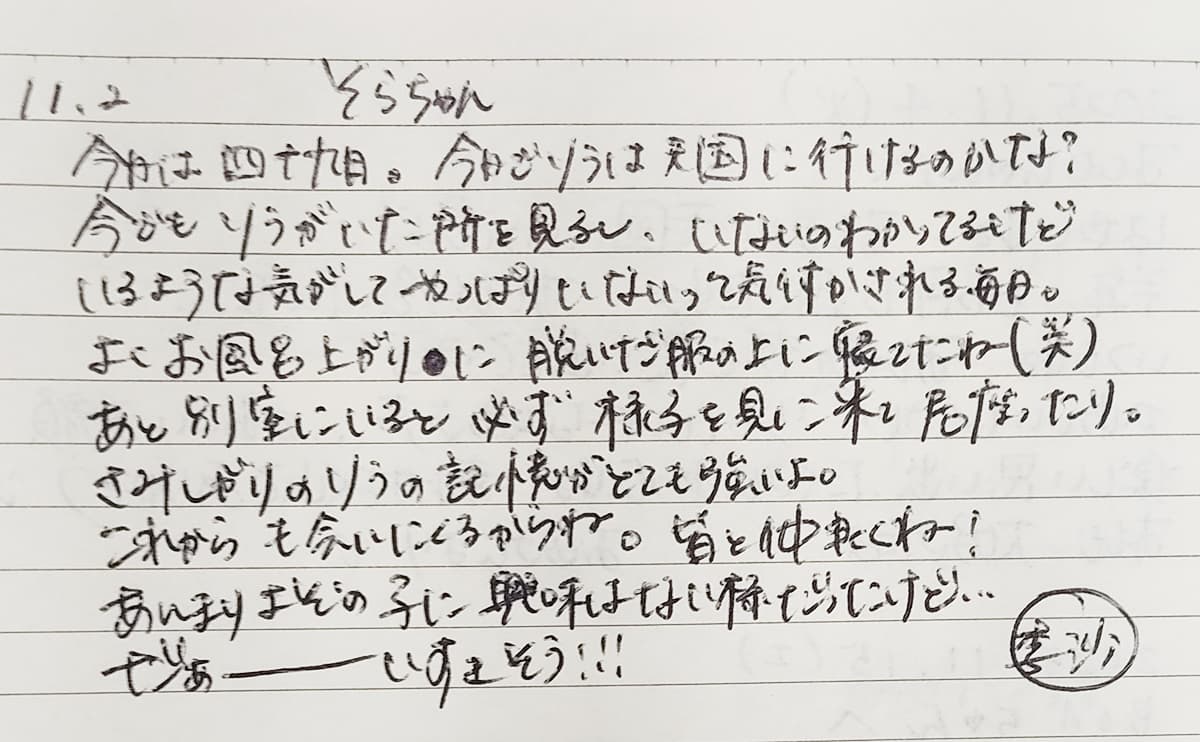 11.2 そらちゃん
今日は四十九日。今日でりうは天国に行けるのかな?
今でもりうがいた所を見るし、いないのわかってるけど
いるような気がしてやっぱりいないって気付かされる毎日。
よくお風呂上がりに脱いだ服の上に寝てたねー(笑)
あと別室にいると必ず様子を見に来て居座ったり。
さみしがりのりうの記憶がとても強いよ。
これからも会いにくるからね。皆と仲良くねー!
あんまりよその子に興味はない様だったけど…
じゃあー いすよそう!!!
李沙